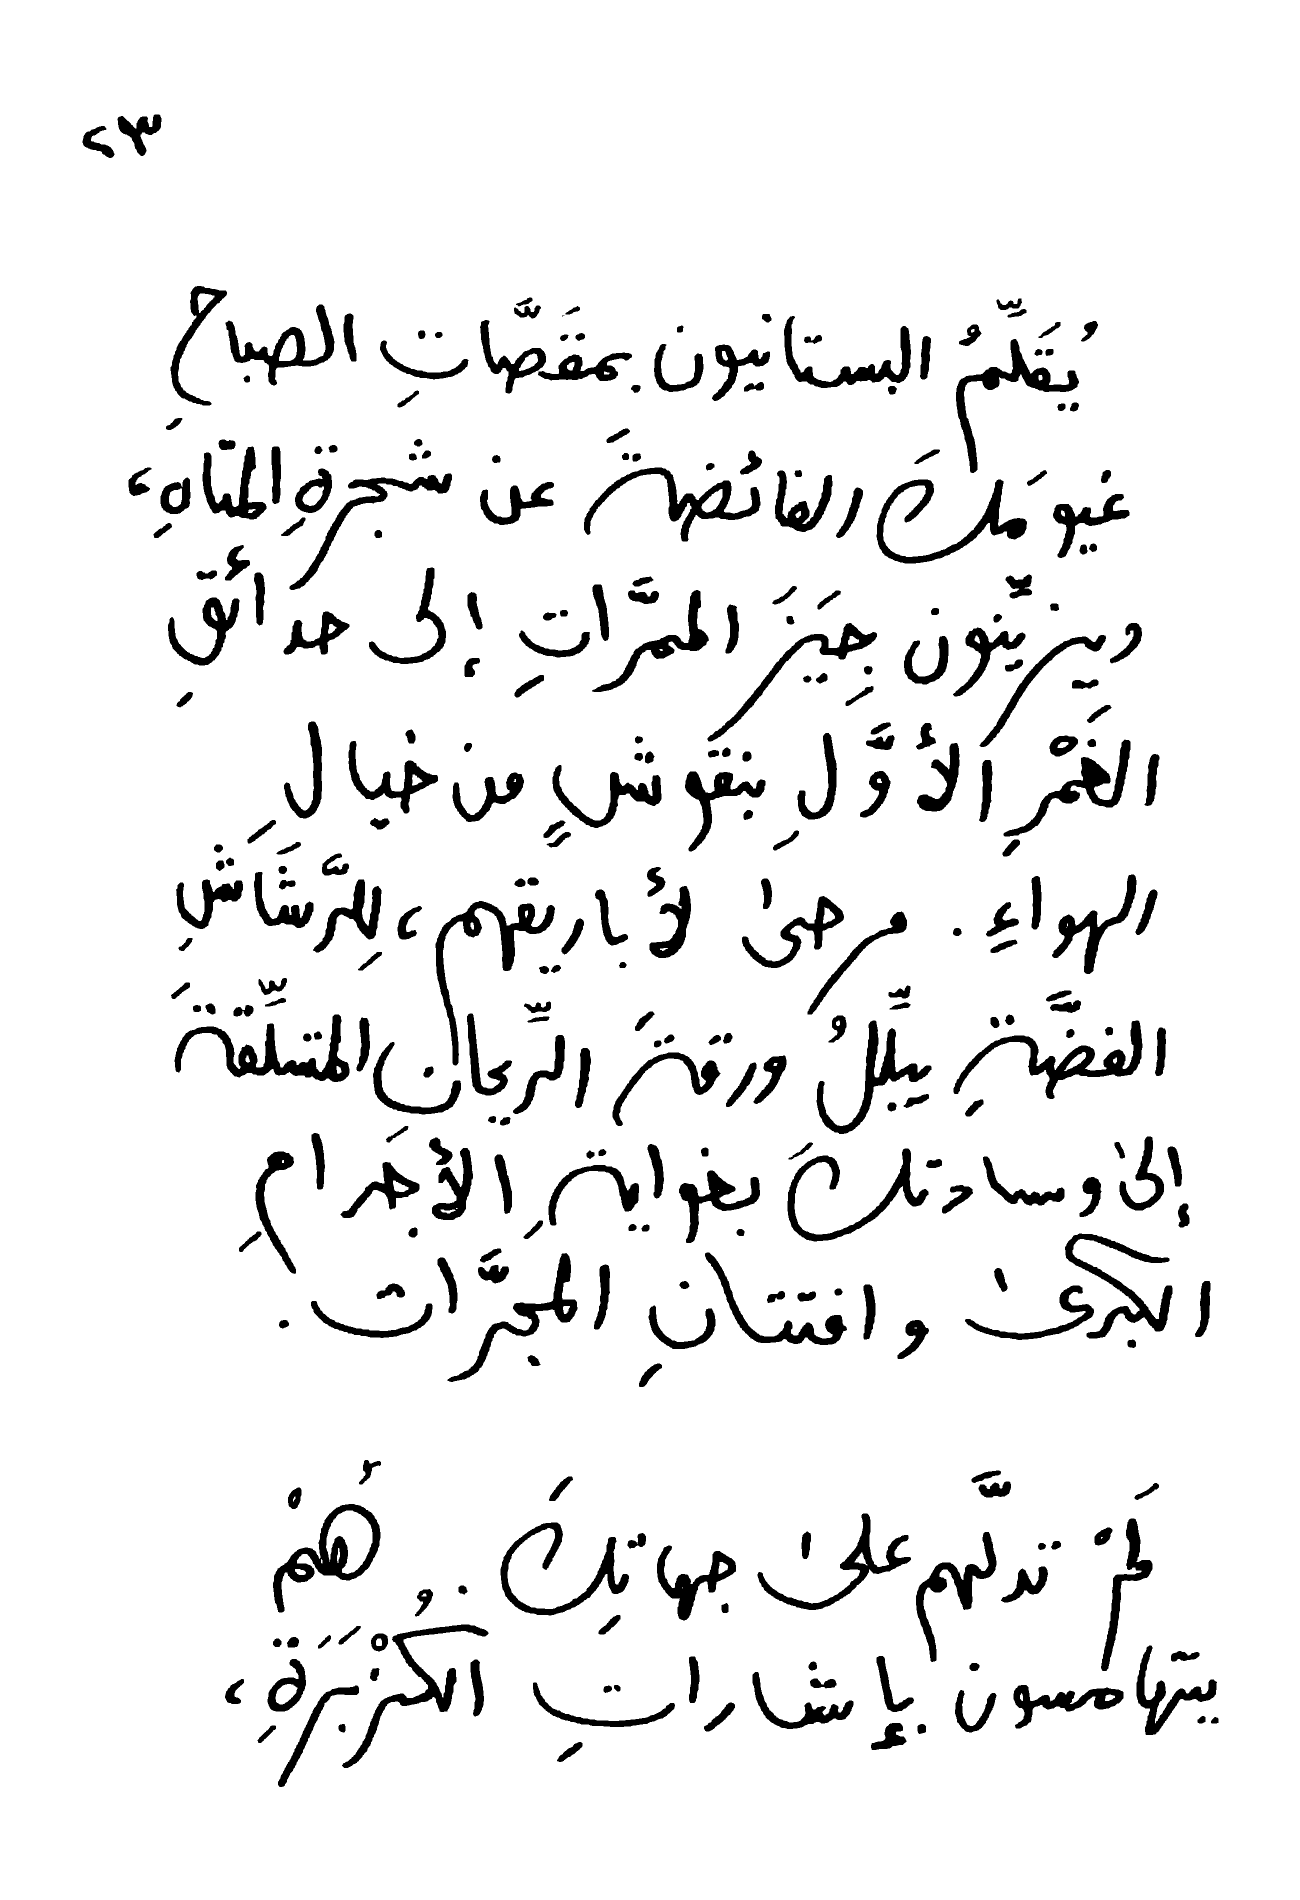 ٢٣
يُقَلِّمُ البستانيون بمقَصَّاتِ الصباح
غيومَكَ الفائضةَ عن شجرةِ المتَاهِ،
ويزيِّنون جِيَزَ الممرَّاتِ إلى حدائقِ
الغَمْرِ الأوَّلِ بنقوشٍ من خيال
الهواءِ . مرحىٰ لأباريقهم ، لِلرَّشَاشِ
الفضَّةِ يبلِّلُ ورقةَ الرِّيحان المتسلِّقةَ
إلىٰ وسادتكَ بغوايةِ الأجَرامِ
الكبرىٰ وافتتانِ المجرَّات .
لَمْ تدلَّهم علىٰ جهاتِكَ . هُمْ
يتهامسون بإشاراتِ الكُزْبَرَةِ ،